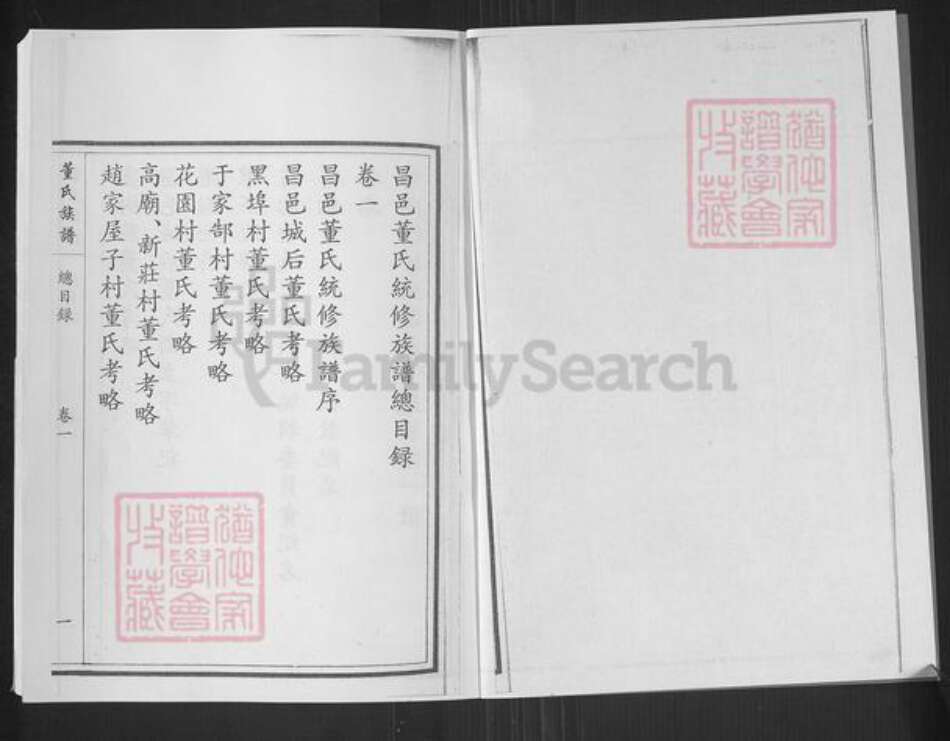 昌邑董氏統修族譜總目録
卷一
昌邑董氏統修族譜序
昌邑城后董氏考略
黑埠村董氏考略
于家郜村董氏考略
花園村董氏考略
高廟、新莊村董氏考略
趙家屋子村董氏考略
董氏族譜
總目録
卷一
一
FamilySearch
猶他家
譜學會
收藏
猶他家
譜學會
收藏